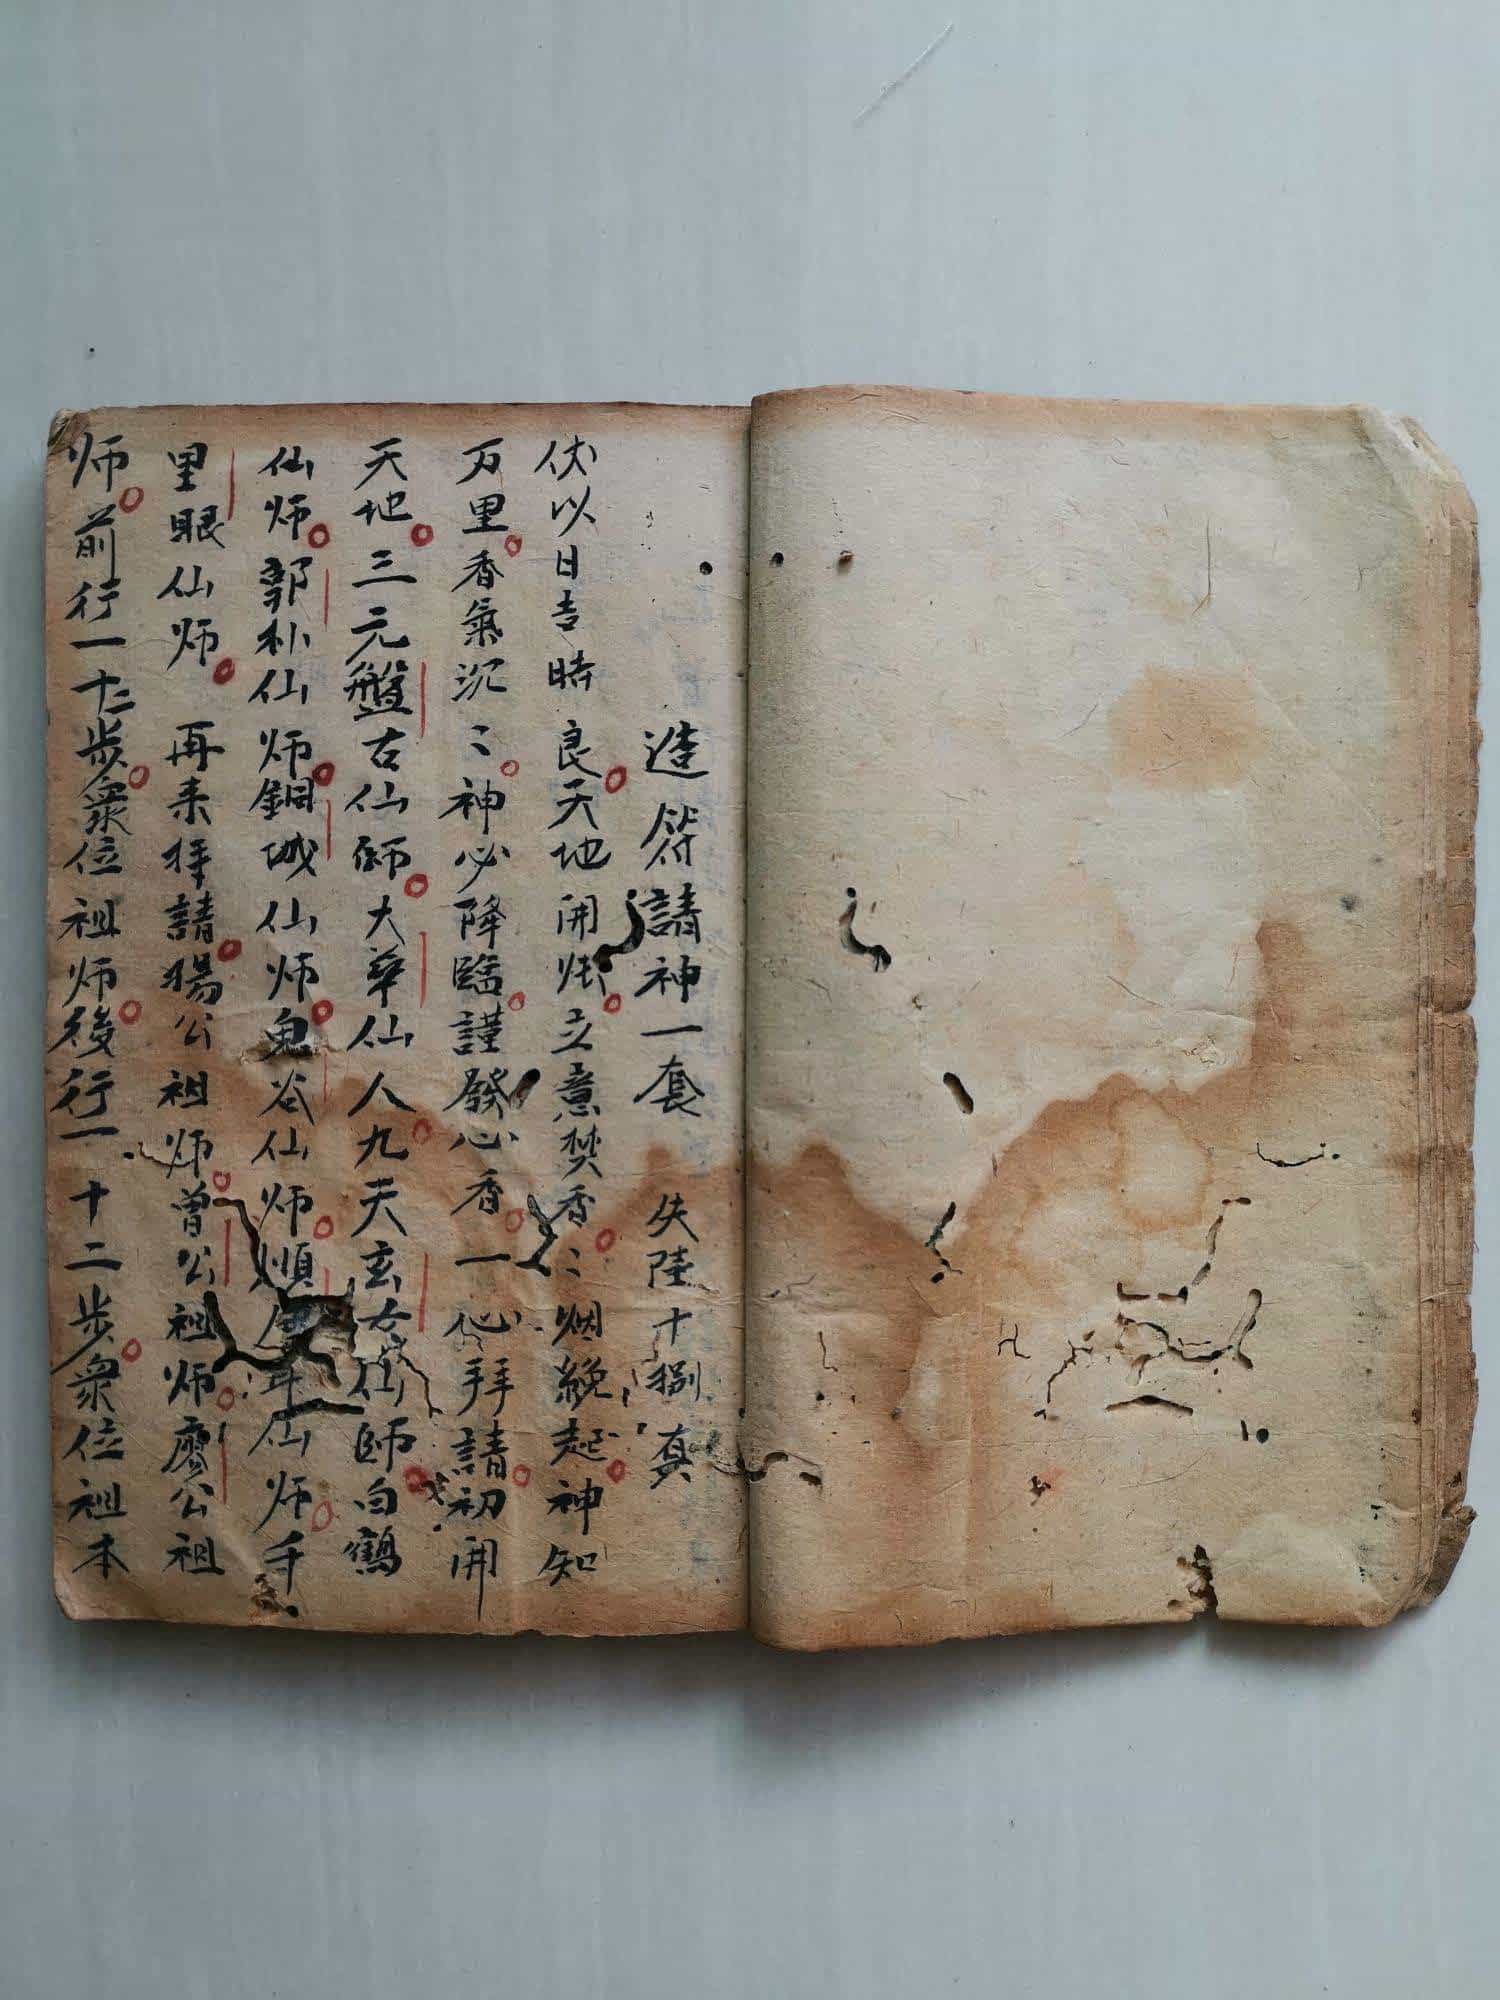 造符請神一套 失陸十捌真
伏以日吉時良天地開炋立意焚香〻烟繞起神知
万里香氣沉〻神必降臨謹發心香一心拜請初開
天地三元盤古仙師大華仙人九天玄女仙師白鶴
仙师郭朴仙师銅城仙师鬼谷仙师順風耳仙师千
里眼仙师再来拝請楊公祖师曾公祖师廖公祖
师前行一十二步衆位祖师後行一十二步衆位祖本